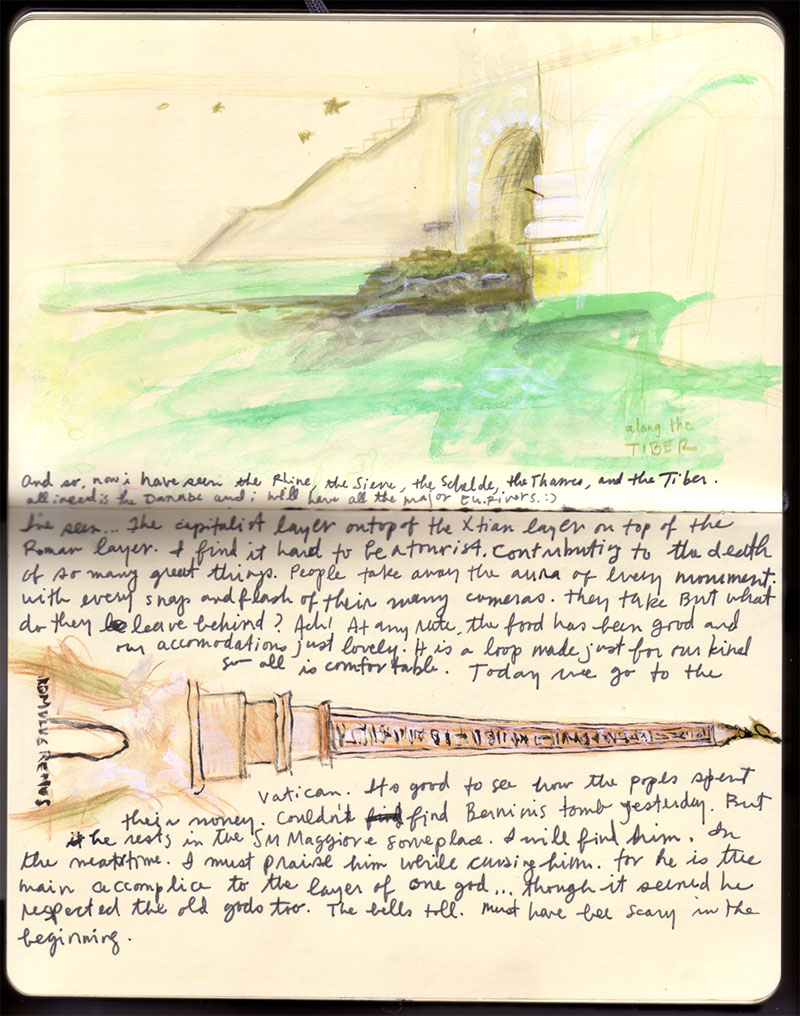 along the
TIBER
And so, now i have seen the Rhine, the Siene, the Schelde, the Thames, and the Tiber.
all i need is the Danube and i will have all the major Eu. Rivers. :)
I've seen... The capitalist layer on top of the Xtian layer on top of the
Roman layer. I find it hard to be a tourist. Contributing to the death
of so many great things. People take away the aura of every monument.
with every snap and flash of their many cameras. they take But what
do they leave behind? Ach! At any rate, the food has been good and
our accomodations just lovely. It is a loop made just for our kind
so all is comfortable. Today we go to the
ROMULUS REMUS
Vatican. It's good to see how the popes spent
their money. Couldn't find Berninis tomb yesterday. But
he rests in the SM Maggiore someplace. I will find him. In
the meantime. I must praise him while cursing him. for he is the
main accomplice to the layer of one god... though it seemed he
respected the old gods too. The bells toll. Must have bee scary in the
beginning.